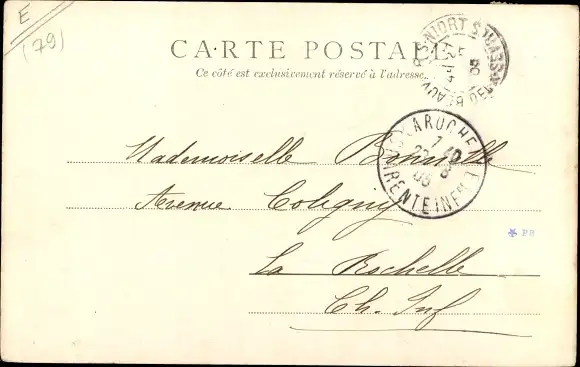 E
(79)
CARTE POSTALE
Ce côté est exclusivement réservé à l'adresse.
NIORT
BEAUV
LA ROCHELLE
7 40
05
CHARENTE INFRE
Mademoiselle Bonnelle
Avenue Coligny
PR
La Rochelle
Ch. Inf